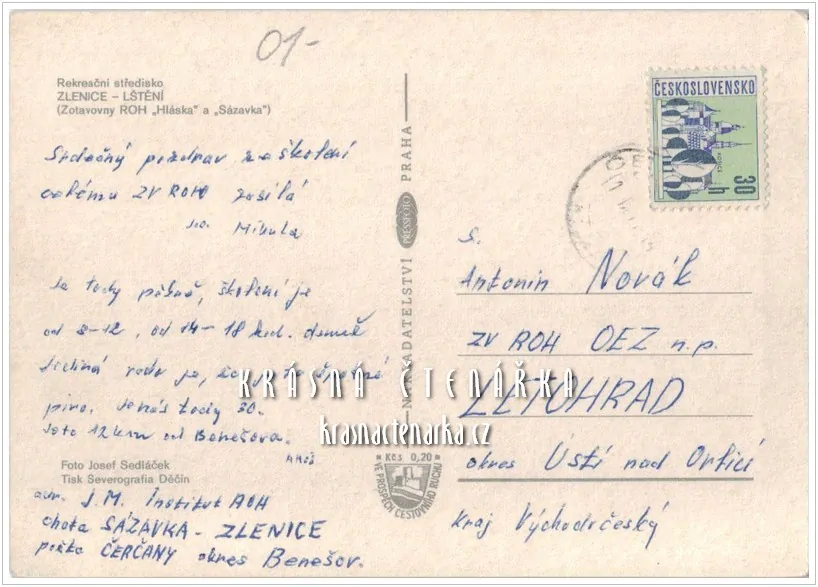 01-
Rekreační středisko
ZLENICE – LŠTĚNÍ
(Zotavovny ROH „Hláska" a „Sázavka")
Srdečný pozdrav ze školení
celému ZV ROH zasílá
Mikula
Je tady pěkně, školení je
od 8-12, od 14-18 hod. denně
je, že je
pivo. tady 30.
12 km od Benešova.
Foto Josef Sedláček
Tisk Severografia Děčín
J.M. Institut ROH
chata SÁZAVKA - ZLENICE
pošta ČERČANY okres Benešov.
NAKLADATELSTVÍ PRESSFOTO PRAHA
Kčs 0,20
VE PROSPĚCH CESTOVNÍHO RUCHU
ČESKOSLOVENSKO
30 h
s.
Antonín Novák
ZV ROH OEZ n.p.
LETOHRAD
okres Ústí nad Orlicí
kraj Východočeský
KRÁSNÁ ČTENÁŘKA
krasnactenarka.cz